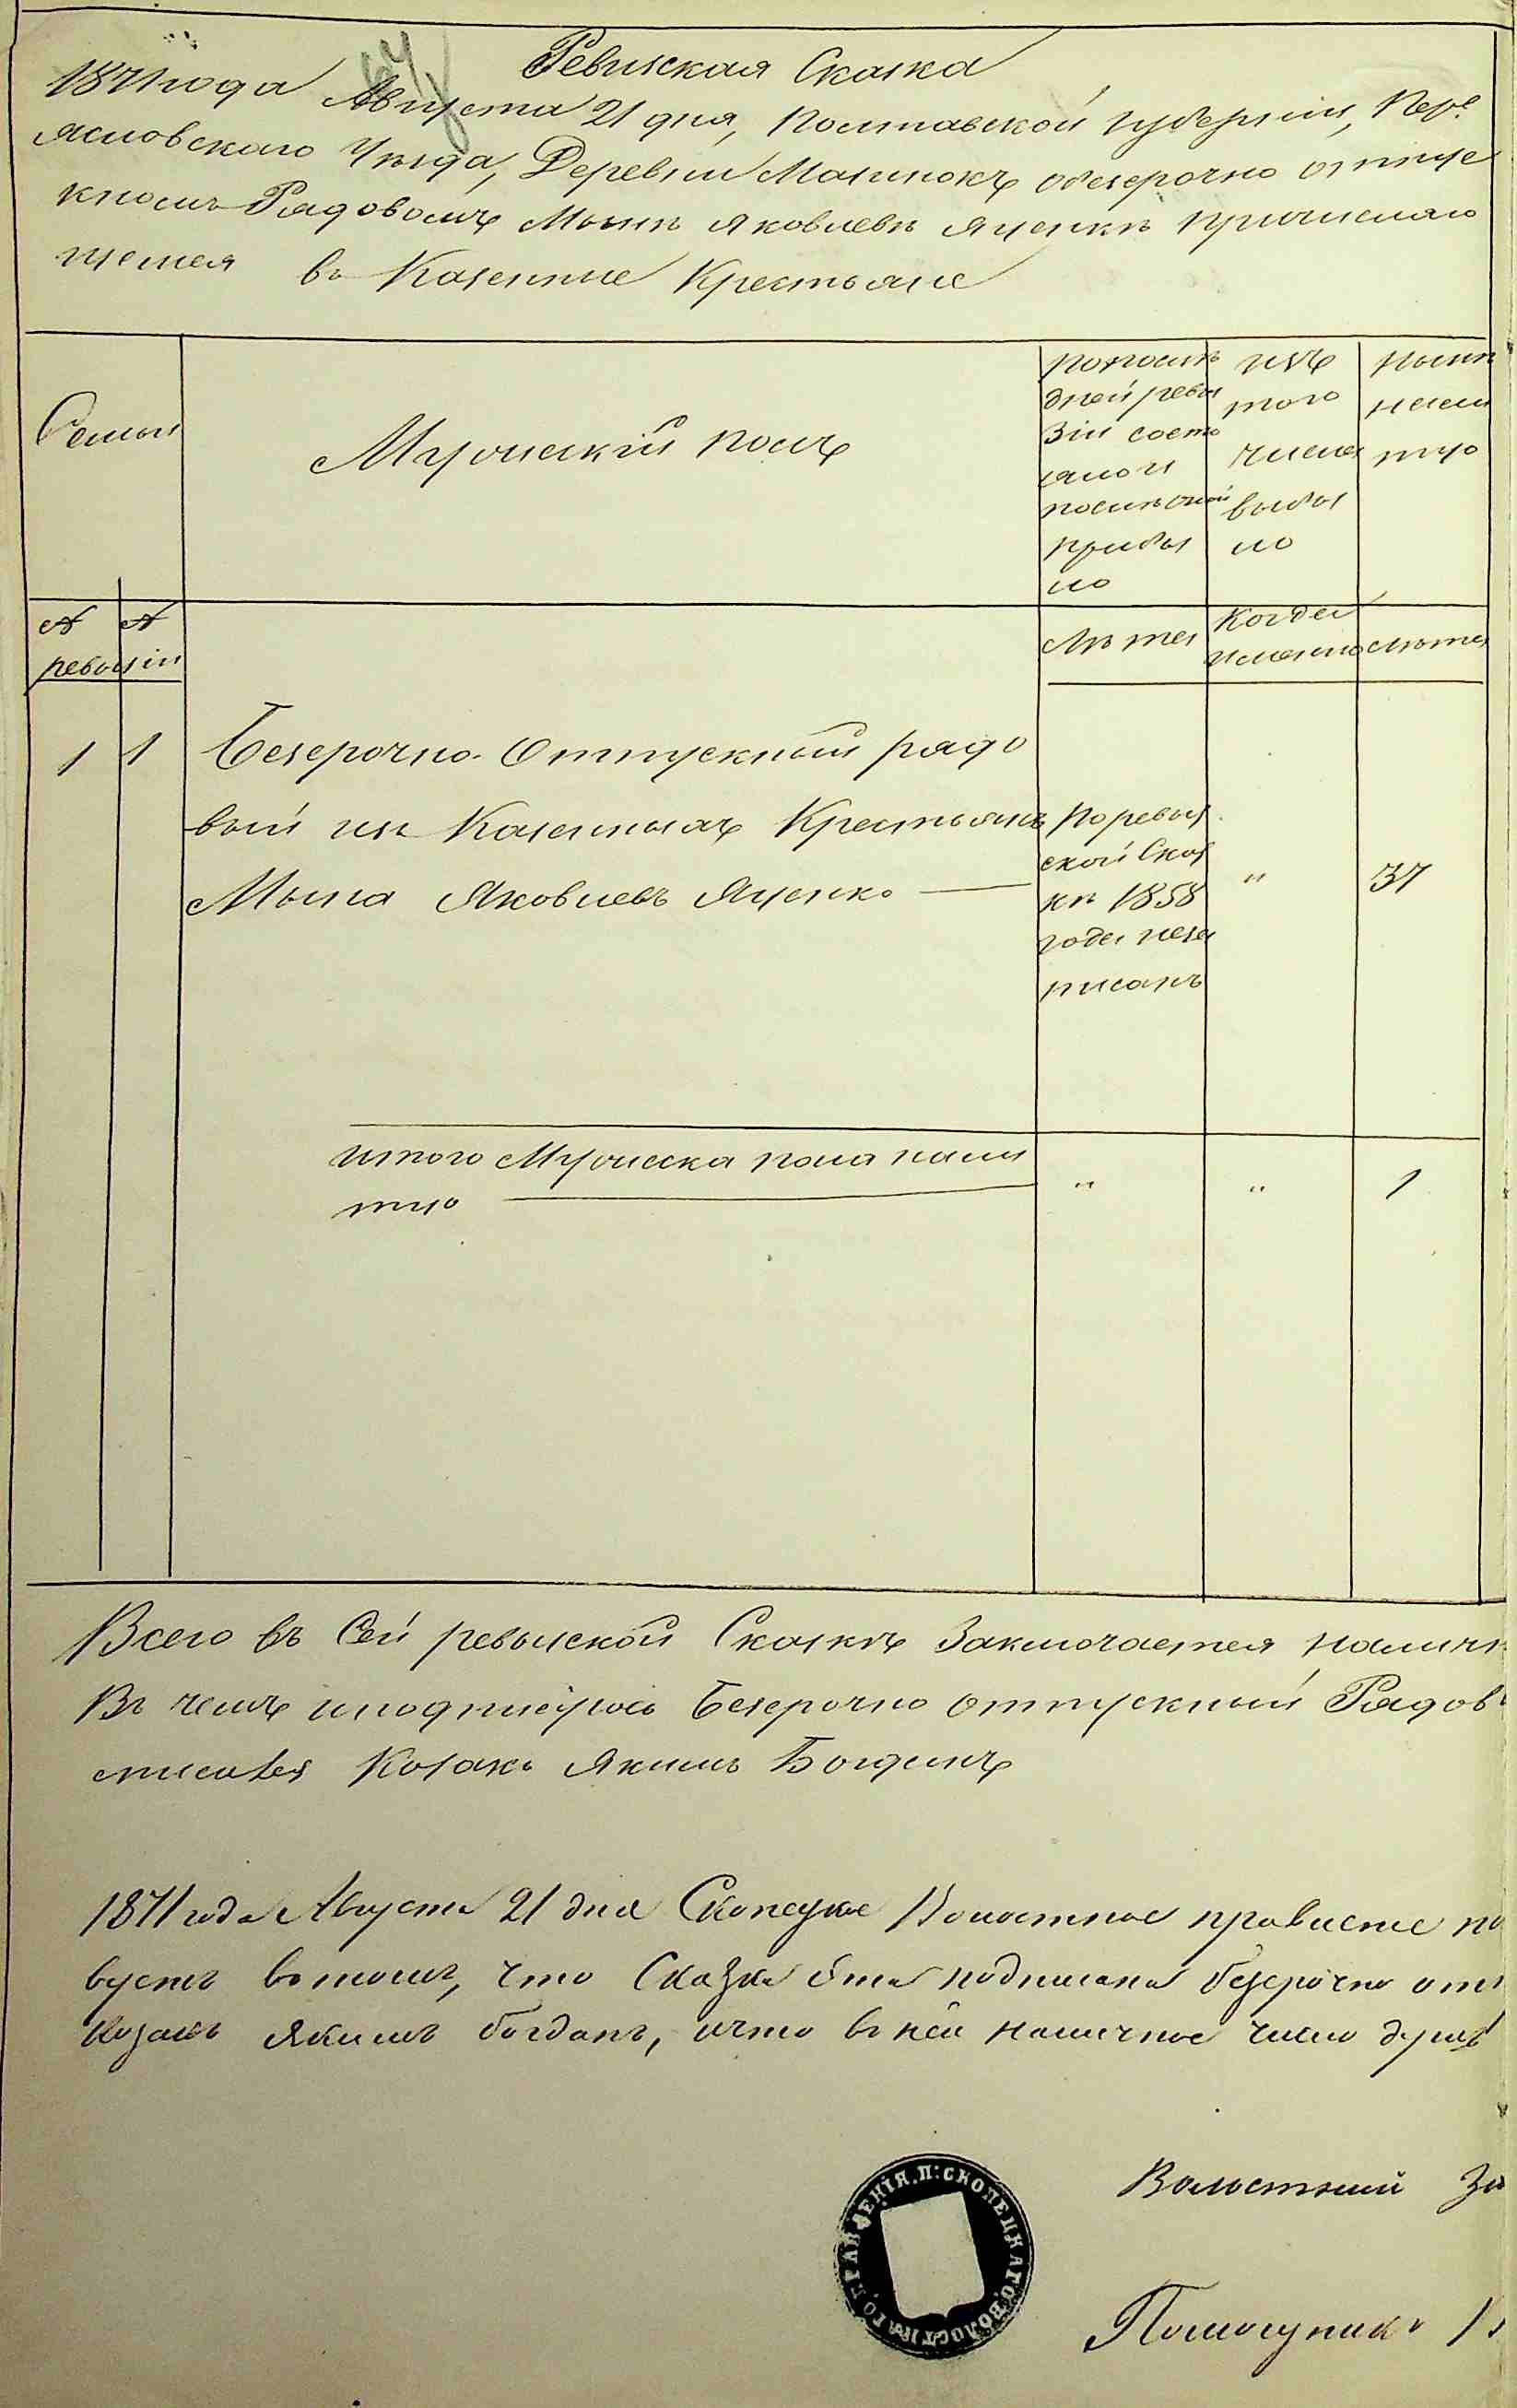 Ревизская Сказка
1871 года Августа 21 дня, Полтавской губерніи, Пере
яславского Уезда, Деревни Малинокъ обезсрочно отпус
кномъ Рядовомъ Яковлевѣ Яценкѣ причисляю
щемся въ Казенные Крестьяне
Семьи
Мужеский полъ
по послѣ
дней реви
зіи состо
яло и
после оной
прибы
ло
изъ
того
числа
выбы
ло
нынѣ
нали
цо
№ №
ревизіи
лѣта
Когда
именно
лѣта
1 1
Безсрочно-Отпускный рядо
вый изъ Казенныхъ Крестьянъ
Яковлевъ Яценко
по ревиз
ской Сказ
кѣ 1858
года неза
писанъ
"
37
итого Мужеска пола нали
цо
" " 1
Всего въ Сей ревизской Сказкѣ Заключается налич
Въ чемъ Безсрочно отпускный Рядов
Козакъ Якимъ Богданъ
1871 года Августа 21 дня Скопецкое Волостное правление
вуетъ въ томъ, что Сказка эта подписана безсрочно отп
Козакъ Якимъ Богданъ, и что в ней наличное число душъ
ПРАВЛЕНІЯ. П: СКОПЕЦКАГО ВОЛОСТНАГО
Волостный
Помощникъ